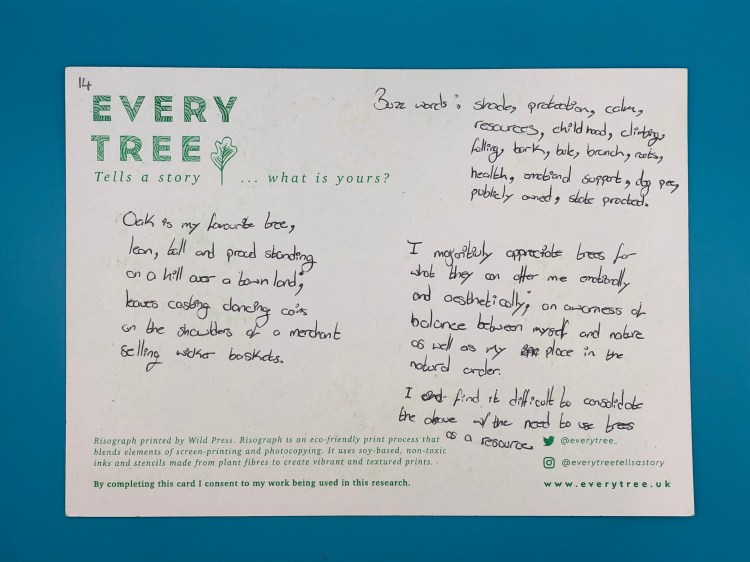 14
EVERY
TREE
Tells a story ... what is yours?
Oak is my favourite tree,
lean, tall and proud standing
on a hill over a town land;
leaves casting dancing coins
on the shoulders of a merchant
selling wicker baskets.
Buzz words: shade, protection, calm,
resources, childhood, climbing,
falling, bark, bole, branch, roots,
health, emotional support, dog pee,
publicly owned, state protected.
I majoritively appreciate trees for
what they can offer me emotionally
and aesthetically; an awarness of
balance between myself and nature
as well as my place in the
natural order.
I find it difficult to consolidate
the above w/ the need to use trees
as a resource.
Risograph printed by Wild Press. Risograph is an eco-friendly print process that
blends elements of screen-printing and photocopying. It uses soy-based, non-toxic
inks and stencils made from plant fibres to create vibrant and textured prints.
By completing this card I consent to my work being used in this research.
@everytree_
@everytreetellsastory
www.everytree.uk